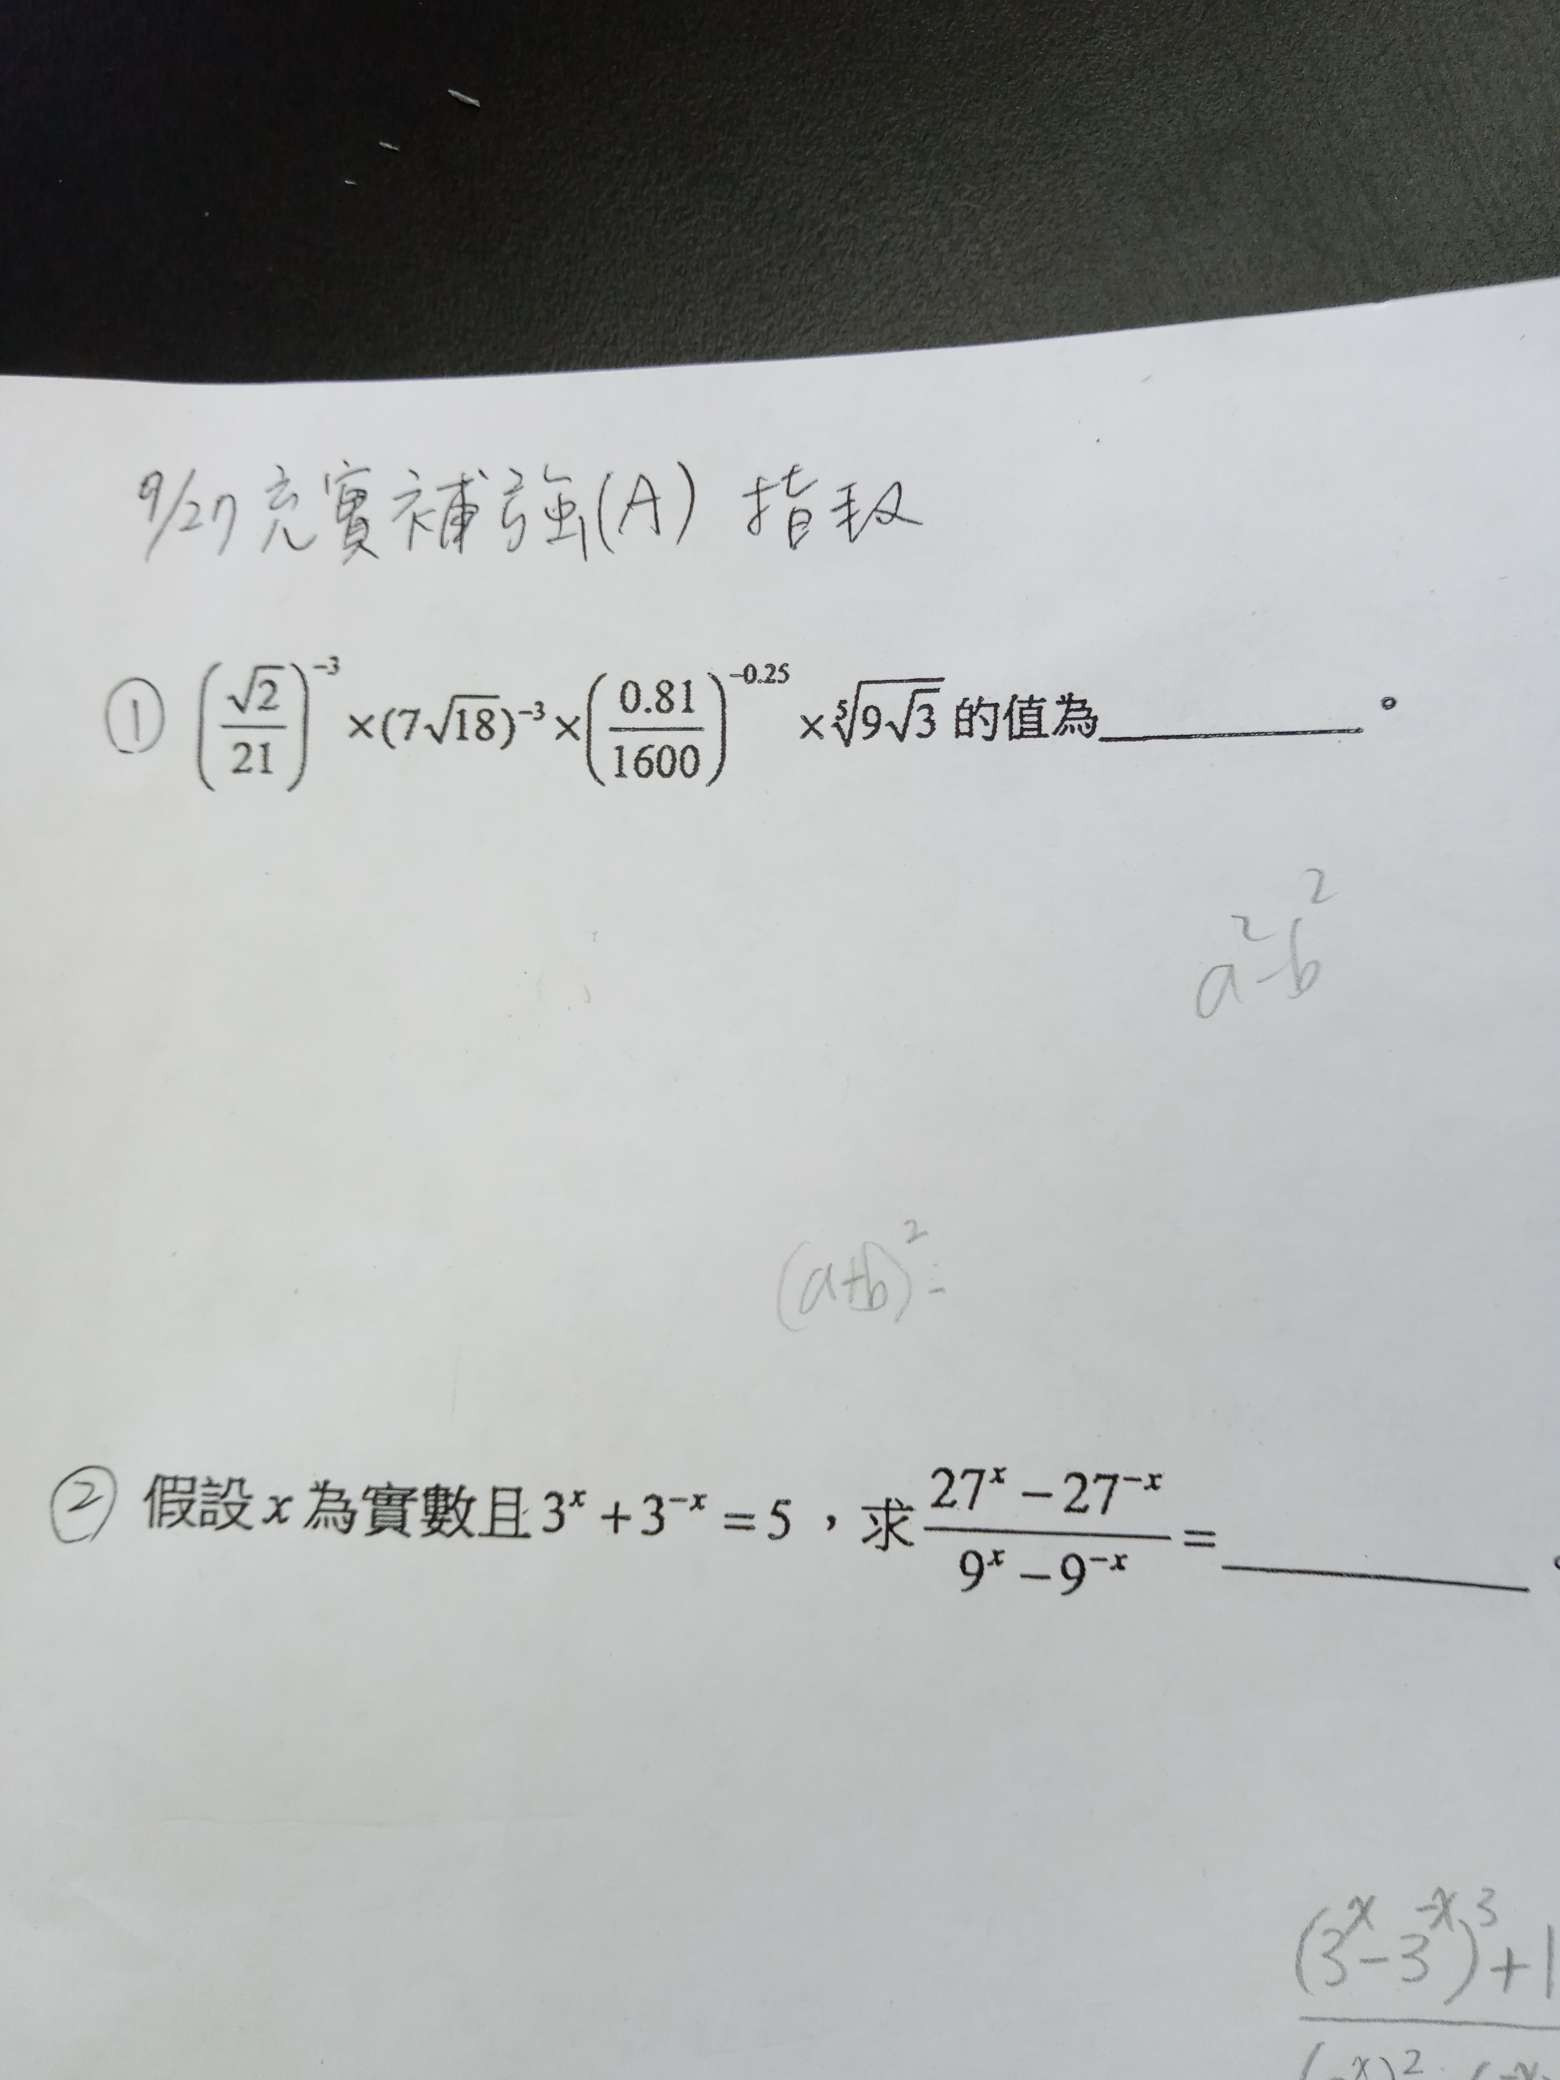 9/27 充實補強(A) 指数
① (√2/21)^-3 × (7√18)^-3 × (0.81/1600)^-0.25 × ⁵√(9√3) 的值為________。
a²-b²
(a+b)²=
② 假設x為實數且3^x + 3^-x = 5，求 (27^x − 27^-x)/(9^x − 9^-x) = ________。
(3^x-3^-x)³+1